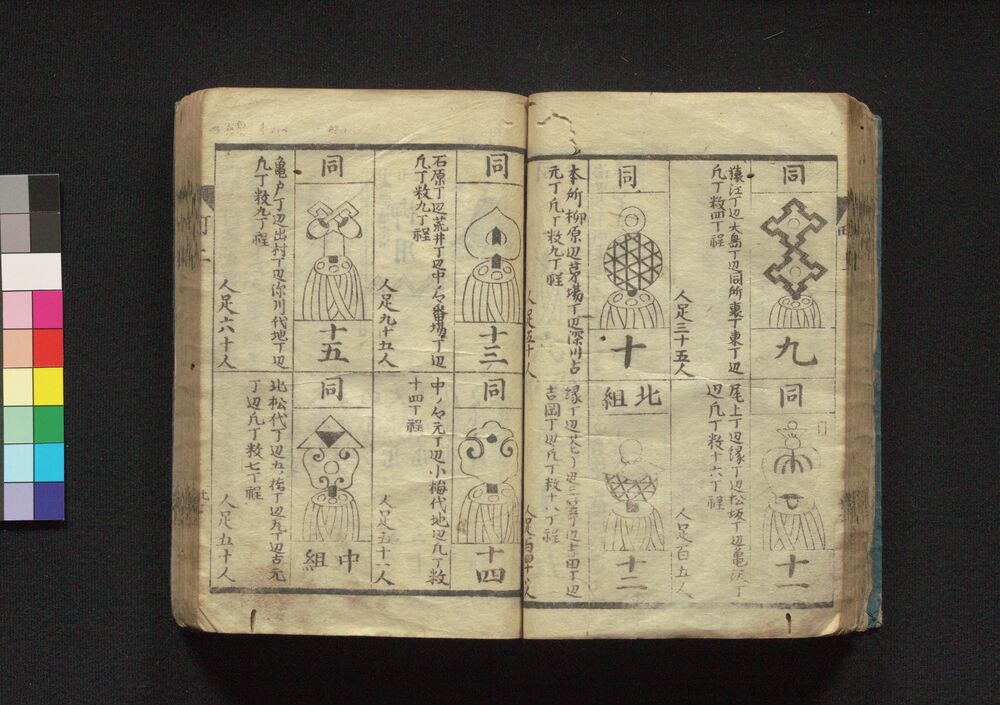 同
九
猿江丁辺大島丁辺同所裏丁東丁辺
凡丁数四丁程
人足三十五人
同
十一
尾上丁辺緑丁辺松坂丁辺亀沢丁
辺凡丁数十六丁程
人足百五人
同
十
本所柳原辺茅場丁辺深川古
元丁凡丁数九丁程
人足五十人
北組
十二
吉岡丁辺凡丁数十八丁程
同
十三
石原丁辺荒井丁辺中ノ々番場丁辺
凡丁数九丁程
人足九十五人
同
十四
中ノ々元丁辺小梅代地辺凡丁数
十四丁程
同
十五
亀戸丁辺出村丁辺深川代地丁辺
凡丁数九丁程
人足六十人
同
中組
丁辺凡丁数七丁程
人足五十人